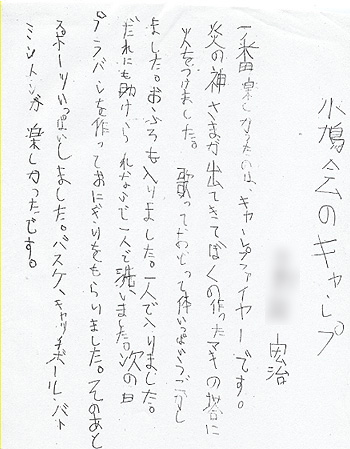 小鳩会のキャンプ
宏治
一番楽しかったのは、キャンプファイヤーです。
炎の神さまが出てきてぼくの作ったマキの塔に
火をつけました。歌っておどって体いっぱいうごかし
ました。おふろも入りました。一人で入りました。
だれにも助けられないで一人で洗いました。次の日
プラバンを作っておにぎりをもらいました。そのあと
スポーツいっぱいしました。バスケ、キャッチボール、バト
ミントンが楽しかったです。